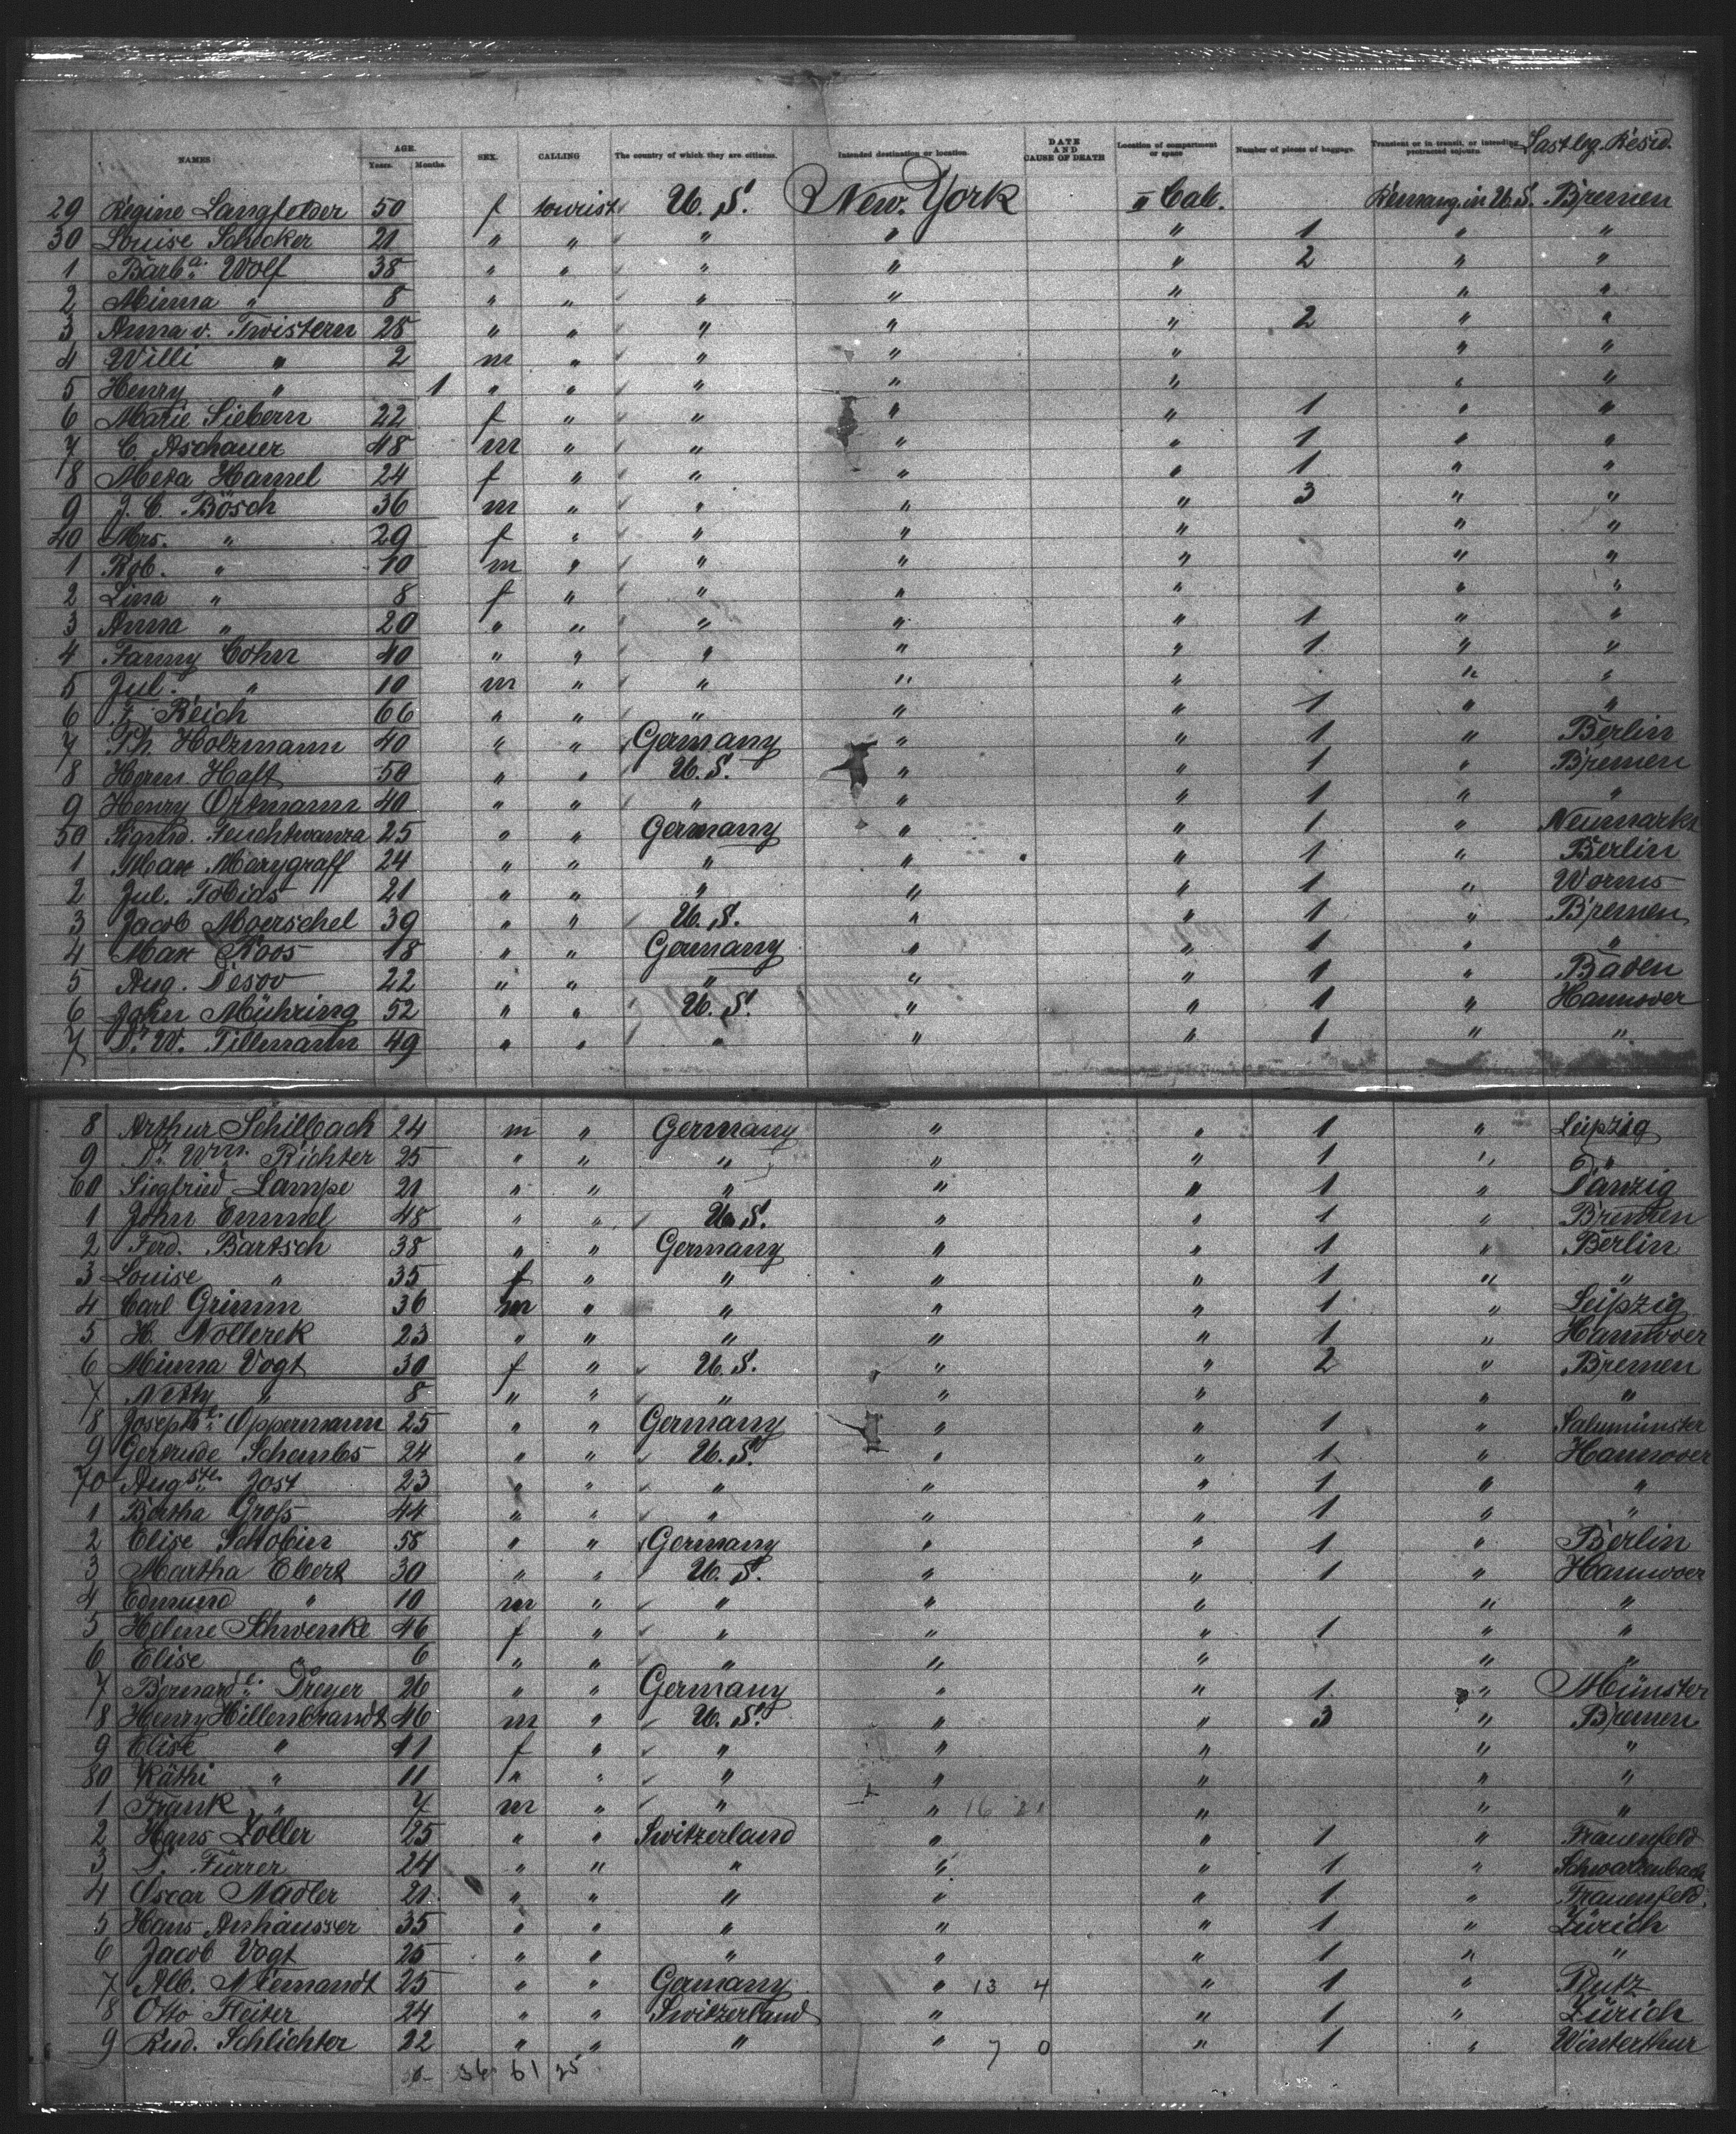 NAMES AGE. Years. Months. SEX. CALLING The country of which they are citizens. Intended destination or location. DATE AND CAUSE OF DEATH Location of compartment or space Number of pieces of baggage. Transient or in transit, or intending protracted sojourn. Last leg. Resid.
29 Regine Langfelder 50 f tourist U. S. New York II Cab. in U. S. Bremen
30 Louise Schecker 21 " " " " " 1 " "
1 Barba. Wolf 38 " " " " " 2 " "
2 Minna " 8 " " " " " " "
3 Anna v. Twistern 28 " " " " " 2 " "
4 Willi " 2 m " " " " " "
5 Henry " 1 " " " " " " "
6 Marie Siebern 22 f " " " " 1 " "
7 C. Aschauer 48 m " " " " 1 " "
8 Meta Hansel 24 f " " " " 1 " "
9 J. C. Bösch 36 m " " " " 3 " "
40 Mrs. " 29 f " " " " " "
1 Rob. " 10 m " " " " " "
2 Lina " 8 f " " " " " "
3 Anna " 20 " " " " " 1 " "
4 Fanny Cohn 40 " " " " " 1 " "
5 Jul. " 10 m " " " " " "
6 Reich 66 " " " " " 1 " "
7 Ph Holzmann 40 " " Germany " " 1 " Berlin
8 Herm. Haft 50 " " U. S. " " 1 " Bremen
9 Henry Ortmann 40 " " " " " 1 " "
50 Sigmd. Feuchtwanza 25 " " Germany " " 1 " Neumarkt
1 Max Marygraff 24 " " " " " 1 " Berlin
2 Jul. Tobias 21 " " " " " 1 " Worms
3 Jacob Moerschel 39 " " U. S. " " 1 " Bremen
4 Max Roos 18 " " Germany " " 1 " "
5 Aug. Desov 22 " " " " " 1 " Baden
6 John Mühring 52 " " U. S. " " 1 " Hannover
7 Dr. W. Tillmann 49 " " " " " 1 " "
8 Arthur Schilbach 24 m " Germany " " 1 " Leipzig
9 Dr. Wm. Richter 25 " " " " " 1 " "
60 Siegfried Lampe 21 " " " " " 1 " Danzig
1 John Emmel 48 " " U. S. " " 1 " Bremen
2 Ferd. Bartsch 38 " " Germany " " 1 " Berlin
3 Louise " 35 f " " " " 1 " "
4 Carl Grimm 36 m " " " " 1 " Leipzig
5 H. Nollerek 23 " " " " " 1 " Hannover
6 Minna Vogt 30 f " U. S. " " 2 " Bremen
7 Netty " 8 " " " " " " "
8 Josephe. Oppermann 25 " " Germany " " 1 " Salmünster
9 Gertrude Schembs 24 " " U. S. " " 1 " Hannover
70 Augste. Jost 23 " " " " " 1 " "
1 Bertha Groß 44 " " " " " 1 " "
2 Elise Schobin 58 " " Germany " " 1 " Berlin
3 Martha Ebert 30 " " U. S. " " 1 " Hannover
4 Edmund " 10 m " " " " " "
5 Helene Schwenke 46 f " " " " 1 " "
6 Elise " 6 " " " " " " "
7 Bernarde. Dreyer 26 " " Germany " " 1 " Münster
8 Henry Hillenbrandt 46 m " U. S. " " 3 " Bremen
9 Elise " 41 f " " " " " "
80 Käthi " 11 " " " " " " "
1 Frank " 7 m " " " 16 21 " " "
2 Hans Zoller 25 " " Switzerland " " 1 " Frauenfeld
3 Furrer 24 " " " " " 1 " Schwarzenbach
4 Oscar Nadler 21 " " " " " 1 " Frauenfeld
5 Hans Anhäusser 35 " " " " " 1 " Zürich
6 Jacob Vogt 25 " " " " " 1 " "
7 Alb. Niemandt 25 " " Germany " 13 4 " 1 "
8 Otto Fleiter 24 " " Switzerland " " 1 " Zürich
9 Rud. Schlichter 22 " " " " 7 0 " 1 " Winterthur
36 61 25